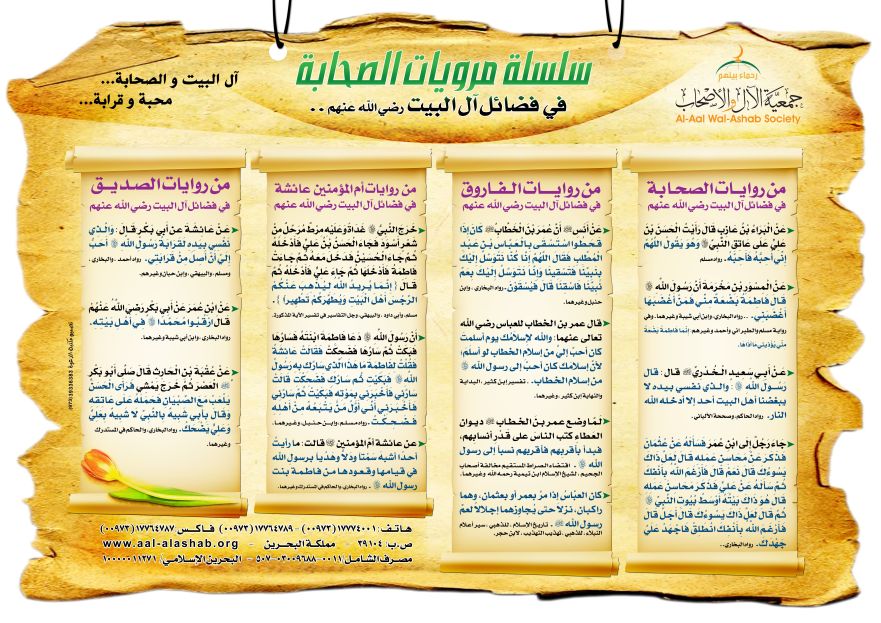 سلسلة مرويات الصحابة
في فضائل آل البيت رضي الله عنهم ..
آل البيت و الصحابة...
محبة و قرابة...
رحماء بينهم
جمعية الآل والأصحاب
Al-Aal Wal-Ashab Society
من روايات الصحابة
في فضائل آل البيت رضي الله عنهم
عن البراء بن عازب قال رأيت الحسن بن
علي على عاتق النبي ﷺ وهو يقول اللهم
إني أحبه فأحبه. رواه مسلم
عن المسور بن مخرمة أن رسول الله ﷺ
قال فاطمة بضعة مني فمن أغضبها
أغضبني. رواه البخاري، وابن أبي شيبة وغيرهما. وفي
رواية مسلم والطبراني وأحمد وغيرهم إنما فاطمة بضعة
مني يؤذيني ما آذاها.
عن أبي سعيد الخدري ﷺ قال: قال
رسول الله ﷺ : والذي نفسي بيده لا
يبغضنا أهل البيت أحد إلا أدخله الله
النار. رواه الحاكم، وصححه الألباني.
جاء رجل إلى ابن عمر فسأله عن عثمان
فذكر عن محاسن عمله قال لعل ذاك
يسوءك قال نعم قال فأرغم الله بأنفك
ثم سأله عن علي فذكر محاسن عمله
قال هو ذاك بيته أوسط بيوت النبي ﷺ
ثم قال لعل ذاك يسوءك قال أجل قال
فأرغم الله بأنفك انطلق فاجهد علي
جهدك. رواه البخاري..
من روايــات الـفـاروق
في فضائل آل البيت رضي الله عنهم
عن أنس أن عمر بن الخطاب كان إذا
قحطوا استسقى بالعباس بن عبد
المطلب فقال اللهم إنا كنا نتوسل إليك
بنبينا فتسقينا وإنا نتوسل إليك بعم
نبينا فاسقنا قال فيسقون. رواه البخاري، وابن
حنبل وغيرهما.
قال عمر بن الخطاب للعباس رضي الله
تعالى عنهما: والله لإسلامك يوم أسلمت
كان أحب إلي من إسلام الخطاب لو أسلم؛
لأن إسلامك كان أحب إلى رسول الله ﷺ
من إسلام الخطاب. تفسير ابن كثير، البداية
والنهاية ابن كثير، وغيرهما.
لما وضع عمر بن الخطاب ديوان
العطاء كتب الناس على قدر أنسابهم،
فبدأ بأقربهم فأقربهم نسبا إلى رسول
الله ﷺ. اقتضاء الصراط المستقيم مخالفة أصحاب
الجحيم، لشيخ الإسلام ابن تيمية رحمه الله وغيرهما.
كان العباس إذا مر بعمر أو بعثمان، وهما
راكبان، نزلا حتى يجاوزهما إجلالا لعم
رسول الله ﷺ. تاريخ الإسلام، للذهبي، سير أعلام
النبلاء، للذهبي، تهذيب التهذيب، لابن حجر.
من روايات أم المؤمنين عائشة
في فضائل آل البيت رضي الله عنهم
خرج النبي ﷺ غداة وعليه مرط مرحل من
شعر أسود فجاء الحسن بن علي فأدخله
ثم جاء الحسين فدخل معه ثم جاءت
فاطمة فأدخلها ثم جاء علي فأدخله ثم
قال {إنما يريد الله ليذهب عنكم
الرجس أهل البيت ويطهركم تطهيرا}.
مسلم، وأبي داود، والبيهقي، وجل التفاسير في تفسير الآية المذكورة.
أن رسول الله ﷺ دعا فاطمة ابنته فسارها
فبكت ثم سارها فضحكت فقالت عائشة
فقلت لفاطمة ما هذا الذي سارك به رسول
الله ﷺ فبكيت ثم سارك فضحكت قالت
سارني فأخبرني بموته فبكيت ثم سارني
فأخبرني أني أول من يتبعه من أهله
فضحكت. رواه مسلم، وابن حنبل، وغيرهما.
عن عائشة أم المؤمنين قالت: ما رأيت
أحدا أشبه سمتا ودلا وهديا برسول الله
في قيامها وقعودها من فاطمة بنت
رسول الله ﷺ. رواه البخاري، والحاكم في المستدرك وغيرهما.
من روايات الصديق
في فضائل آل البيت رضي الله عنهم
عن عائشة عن أبي بكر قال: والذي
نفسي بيده لقرابة رسول الله ﷺ أحب
إلي أن أصل من قرابتي. رواه أحمد، والبخاري،
ومسلم، والبيهقي، وابن حبان وغيرهم.
عن ابن عمر عن أبي بكر رضي الله عنهم
قال ارقبوا محمدا ﷺ في أهل بيته.
رواه البخاري، وابن أبي شيبة وغيرهما.
عن عقبة بن الحارث قال صلى أبو بكر
العصر ثم خرج يمشي فرأى الحسن
يلعب مع الصبيان فحمله على عاتقه
وقال بأبي شبيه بالنبي لا شبيه بعلي
وعلي يضحك. رواه البخاري، والحاكم في المستدرك
وغيرهما.
هاتف: ١٧٧٧٤٠٠١ (٠٠٩٧٣) - ١٧٧٦٤٧٨٩ (٠٠٩٧٣) فاكس: ١٧٧٦٤٧٨٧ (٠٠٩٧٣)
ص.ب: ٣٩١٠٤ - مملكة البحرين - www.aal-alashab.org
مصرف الشامل: ٠٠١١-٠٣٠٠٩٦٨٨-٥٠٧ - البحرين الإسلامي: ١٠٠٠٠٠١١٢٧١